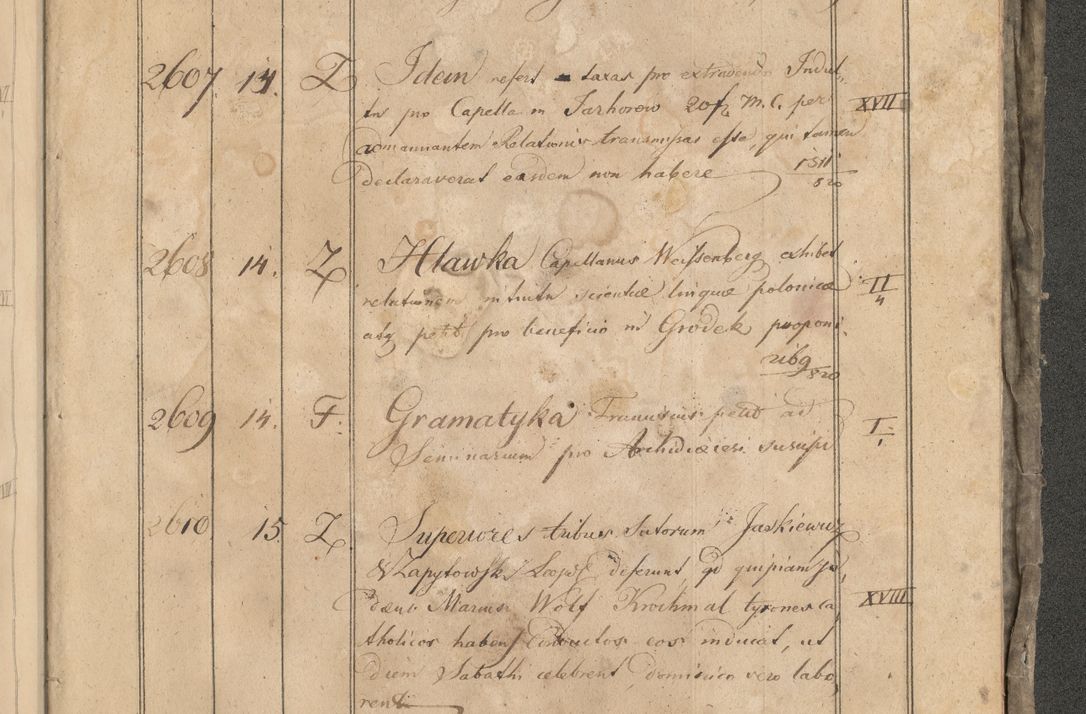 2607 14. Z Idem refert taxas pro extradendo Indul-
to pro Capella in Jarhorow 20 f m. C. per XVII
transmissas esse, qui tamen
declaraverat easdem non habere 1511/820
2608 14. Z Hławka Capellanus Weissenberg exhibet
relationem intuitu scientiæ linguæ polonicæ II/4
atq petit pro beneficio in Grodek proponi.
2169/820
2609 14. F. Gramatyka Franciscus petit ad I/1
Seminarium pro Archidiæcesi suscipi
2610 15. Z Superiores tribus Sutorum Jaskiewicz
& Zapytowsk Leopol deferunt, qd quipiam Ju,
daeus Marcus Wolf Krochmal tyrones ca XVIII
tholicos habens conductos eos inducat, ut
diem Sabathi celebrent, dominico vero labo,
rent